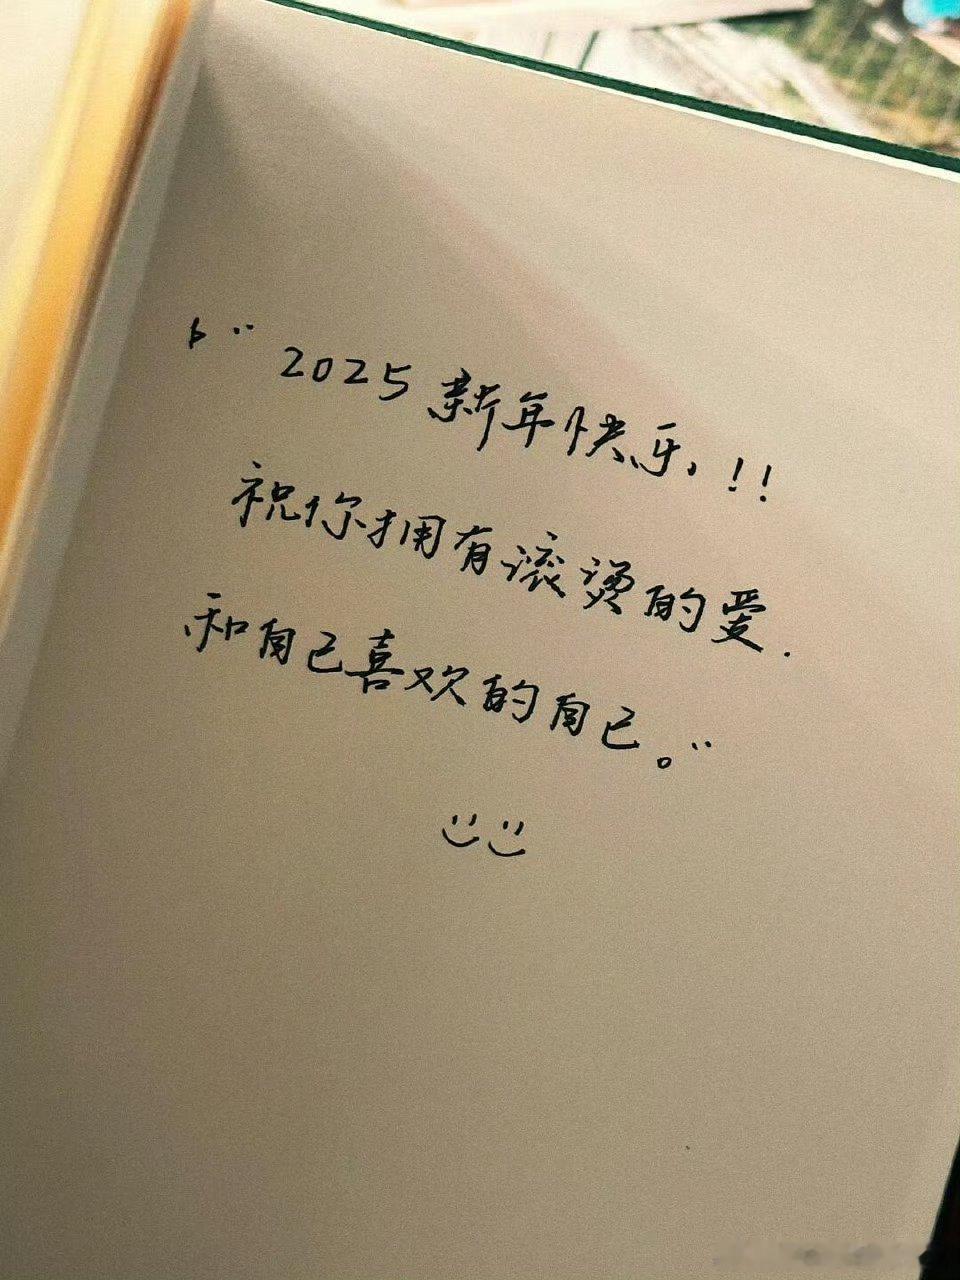 “2025新年快乐，!!
祝你拥有滚烫的爱.
和自己喜欢的自己。”